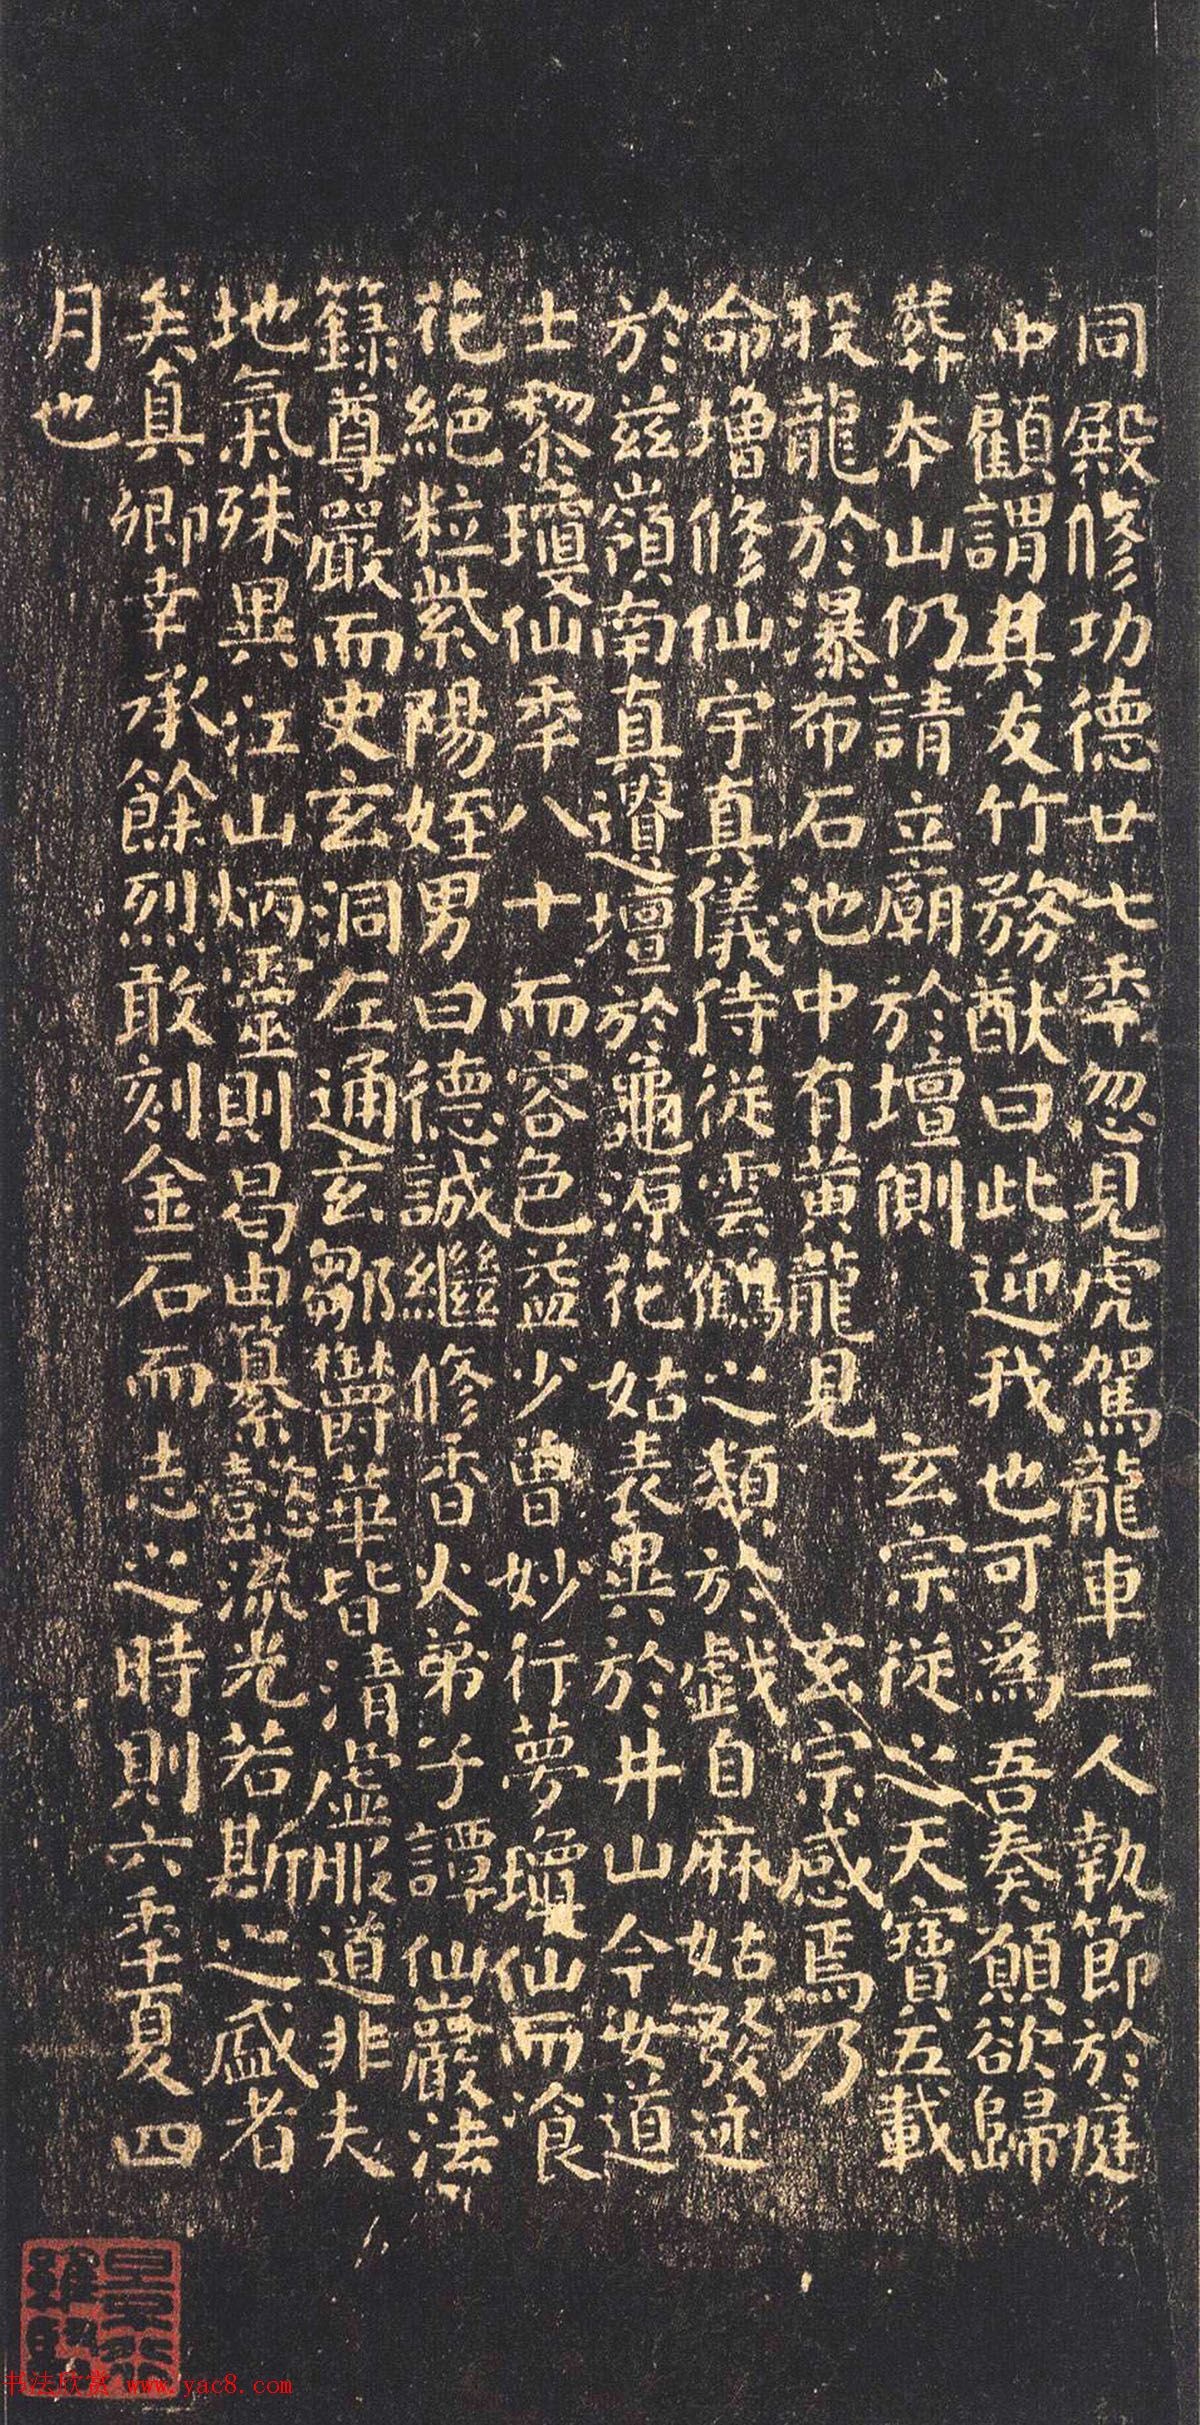 同殿修功德廿七秊忽見虎駕龍車二人執節於庭
中顧謂其友竹務猷曰此迎我也可為吾奏願欲歸
葬本山仍請立廟於壇側玄宗從之天寶五載
投龍於瀑布石池中有黄龍見玄宗感焉乃
命增修仙宇真儀侍從雲鶴之類於戲自麻姑發迹
於兹嶺南真遺壇於龜源花姑表異於井山今女道
士黎瓊仙秊八十而容色益少曾妙行夢瓊仙而飡
花絕粒紫陽姪男曰德誠繼修香火弟子譚仙巖法
籙尊嚴而史玄洞左通玄鄒鬱華皆清虛服道非夫
地氣殊異江山炳靈則曷由纂懿流光若斯之盛者
矣真卿幸承餘烈敢刻金石而志之時則六秊夏四
月也
书法欣赏 www.yac8.com